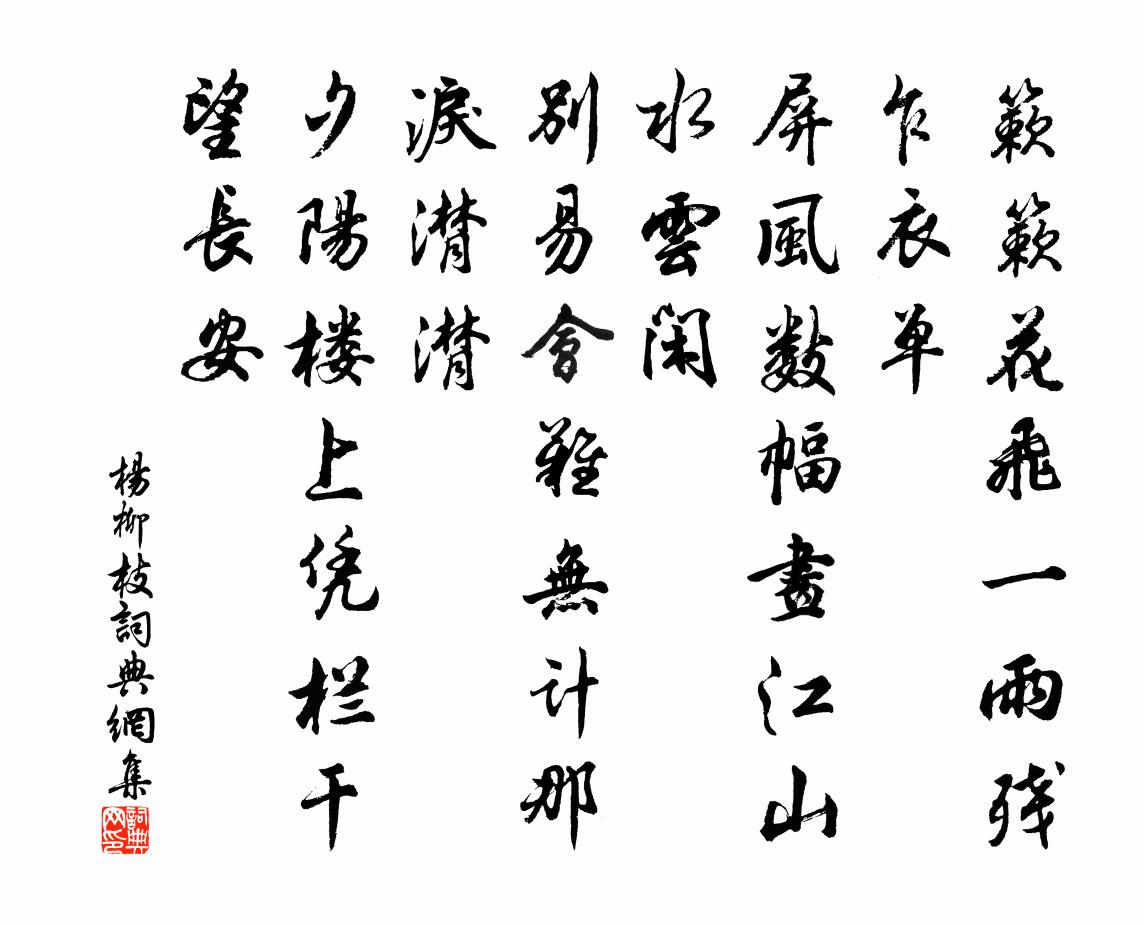 簌簌花飛一雨残
乍衣单
屏風数幅畫江山
水雲閑
別易會難無计那
淚潸潸
夕陽楼上凭栏干
望長安
楊柳枝詞典網集
詞典网印